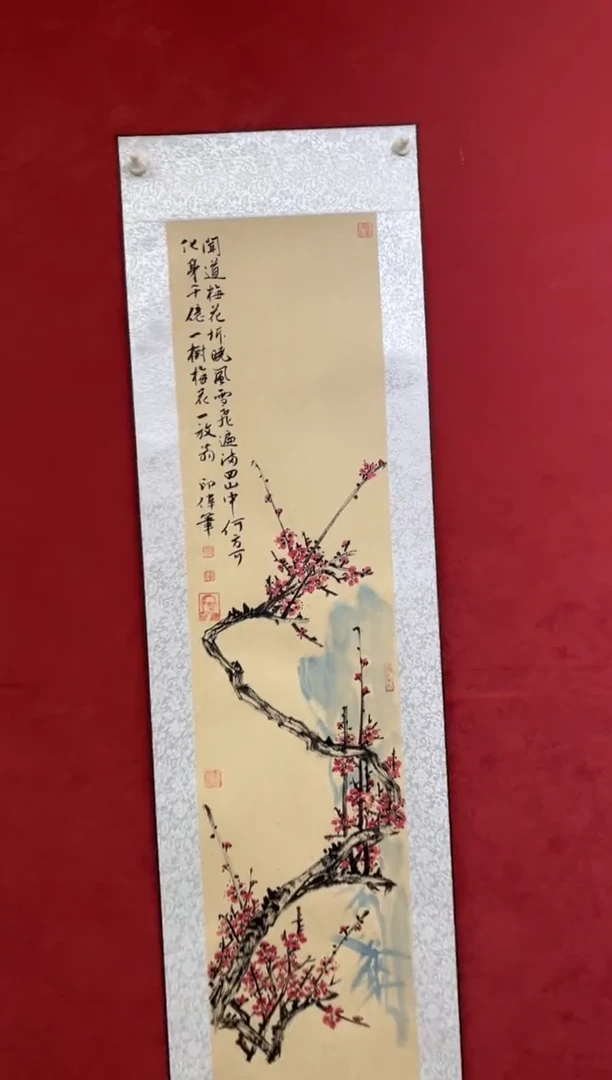 聞道梅花坼曉風雪飛遍满四山中何方可
化身千億一樹梅花一放翁 印偉筆